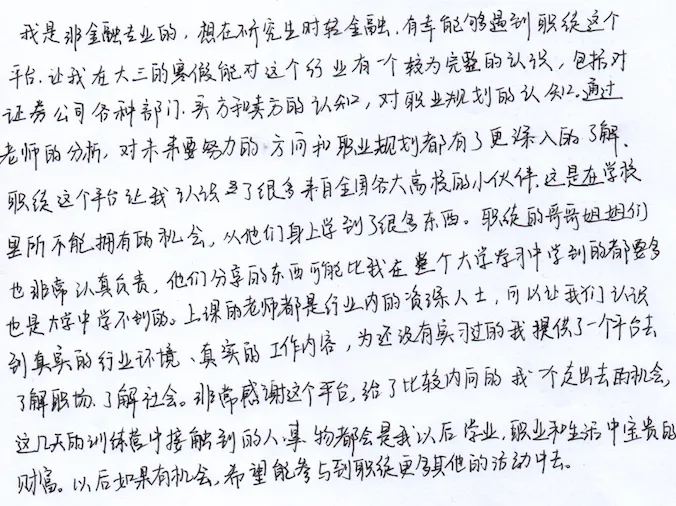 我是非金融专业的,想在研究生时转金融,有幸能够遇到职徒这个
平台.让我在大三的寒假能对这个行业有一个较为完整的认识,包括对
证券公司各种部门.买方和卖方的认知,对职业规划的认知.通过
老师的分析,对未来要努力的方向和职业规划都有了更深入的了解.
职徒这个平台让我认识了很多来自全国各大高校的小伙伴.这是在学校
里所不能拥有的机会,从他们身上学到了很多东西。职徒的哥哥姐姐们
也非常认真负责,他们分享的东西可能比我在整个大学学习中学到的都要多
也是大学中学不到的。上课的老师都是行业内的资深人士,可以让我们认识
到真实的行业环境、真实的工作内容,为还没有实习过的我提供了一个平台去
了解职场.了解社会。非常感谢这个平台,给了比较内向的我一个走出去的机会,
这几天的训练营中接触到的人.事物都会是我以后学业,职业和生活中宝贵的
财富。以后如果有机会,希望能参与到职徒更多其他的活动中去。